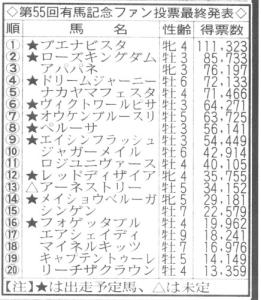 ◇第55回有馬記念ファン投票最終発表◇
順 馬名 性齢 得票数
① ★ブエナビスタ 牝4 111,323
② ★ローズキングダム 牡3 85,733
③ アパパネ 牝3 76,197
④ ★ドリームジャーニー 牡6 72,133
⑤ ナカヤマフェスタ 牡4 71,466
⑥ ★ヴィクトワールピサ 牡3 64,271
⑦ ★オウケンブルースリ 牡5 63,725
⑧ ★ペルーサ 牡3 56,141
⑨ ★エイシンフラッシュ 牡3 54,449
⑩ ジャガーメイル 牡6 42,914
⑪ ロジユニヴァース 牡4 40,105
⑫ ★レッドディザイア 牝4 35,755
⑬ △アーネストリー 牡5 34,152
⑭ ★メイショウベルーガ 牝5 29,181
⑮ シンゲン 牡7 22,579
⑯ ★フォゲッタブル 牡4 19,962
⑰ エアシェイディ 牡9 18,241
⑱ マイネルキッツ 牡7 16,976
⑲ キャプテントゥーレ 牡5 14,149
⑳ リーチザクラウン 牡4 13,359
【注】★は出走予定馬、△は未定